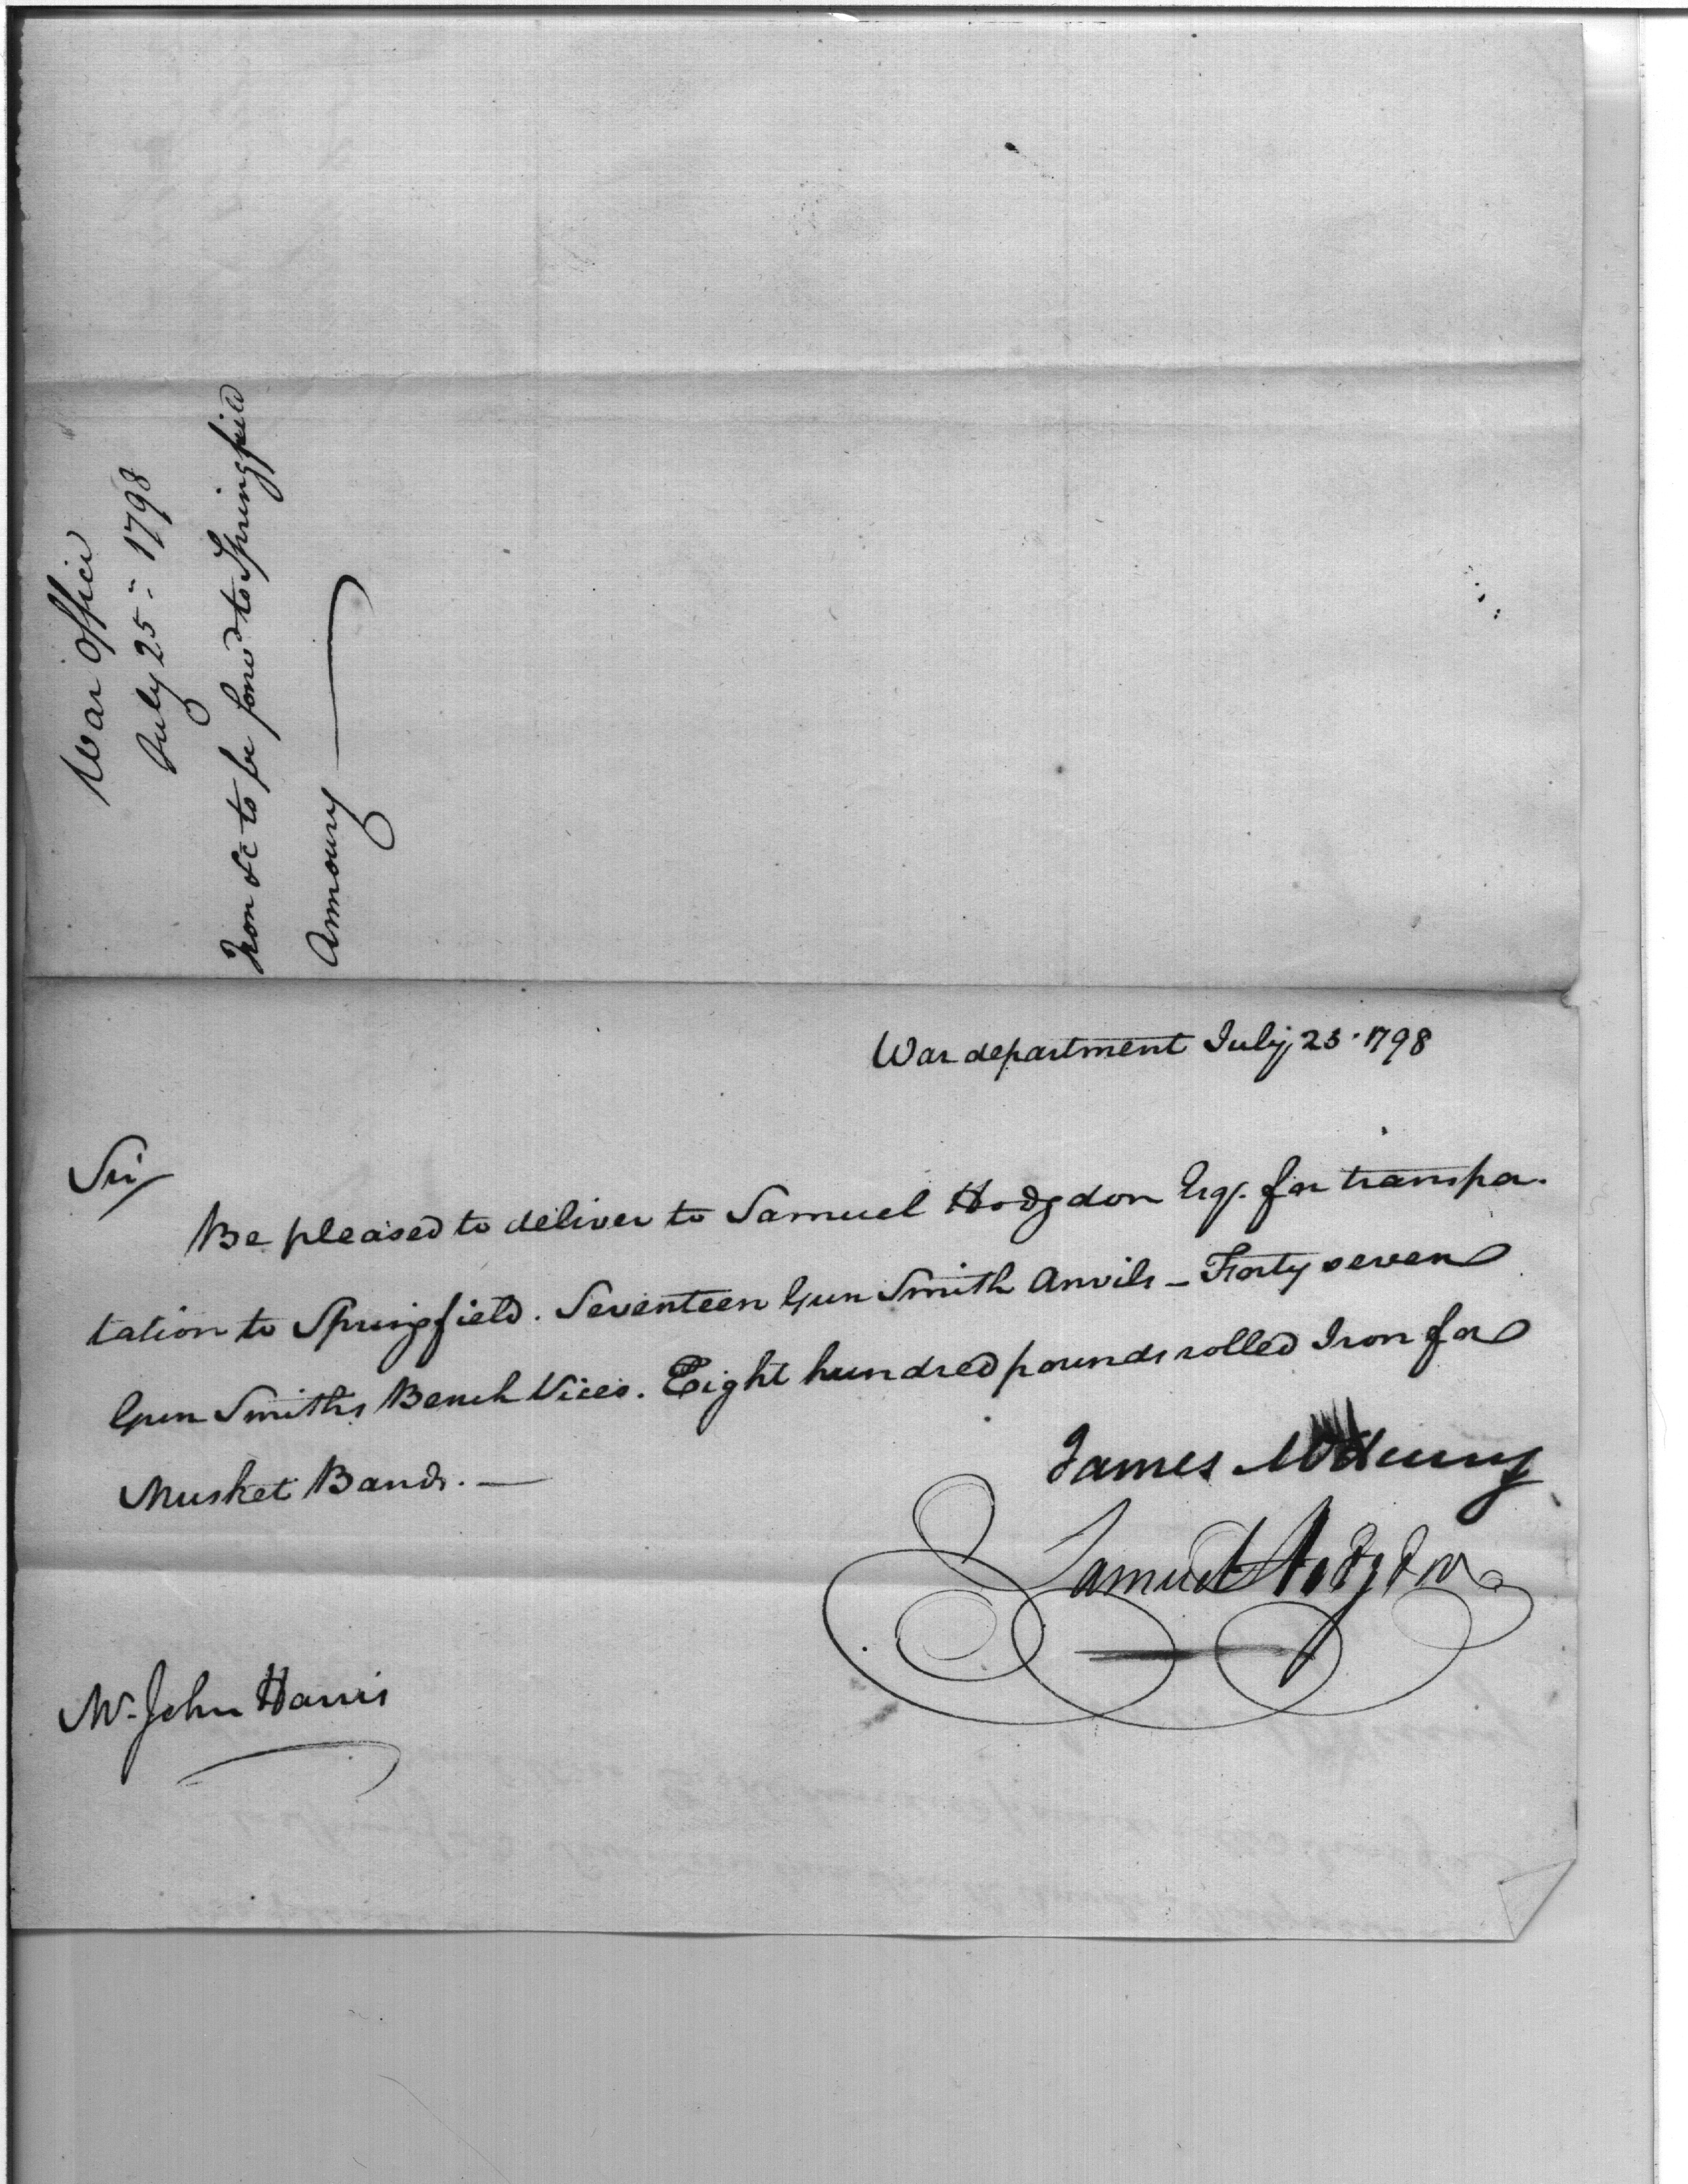 War Office
July 25 - 1798
Iron &c to be forwd to Springfield
Armoury
War department July 25 · 1798
Sir
Be pleased to deliver to Samuel Hodgdon Esq. for transpor-
tation to Springfield. Seventeen Gun Smith Anvils - Forty seven
Gun Smiths Bench Vices. Eight hundred pounds rolled Iron for
Musket Bands. —
James McHenry
Samuel Hodgdon
Mr. John Harris